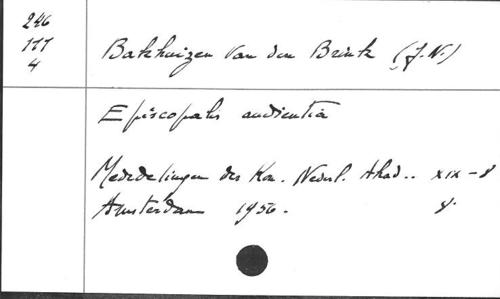 246
111
4
Bakhuizen Van den Brink (J.N.)
Episcopalis audientia
Mededelingen der Kon. Nederl. Akad.. XIX-8
Amsterdam 1956. 8.